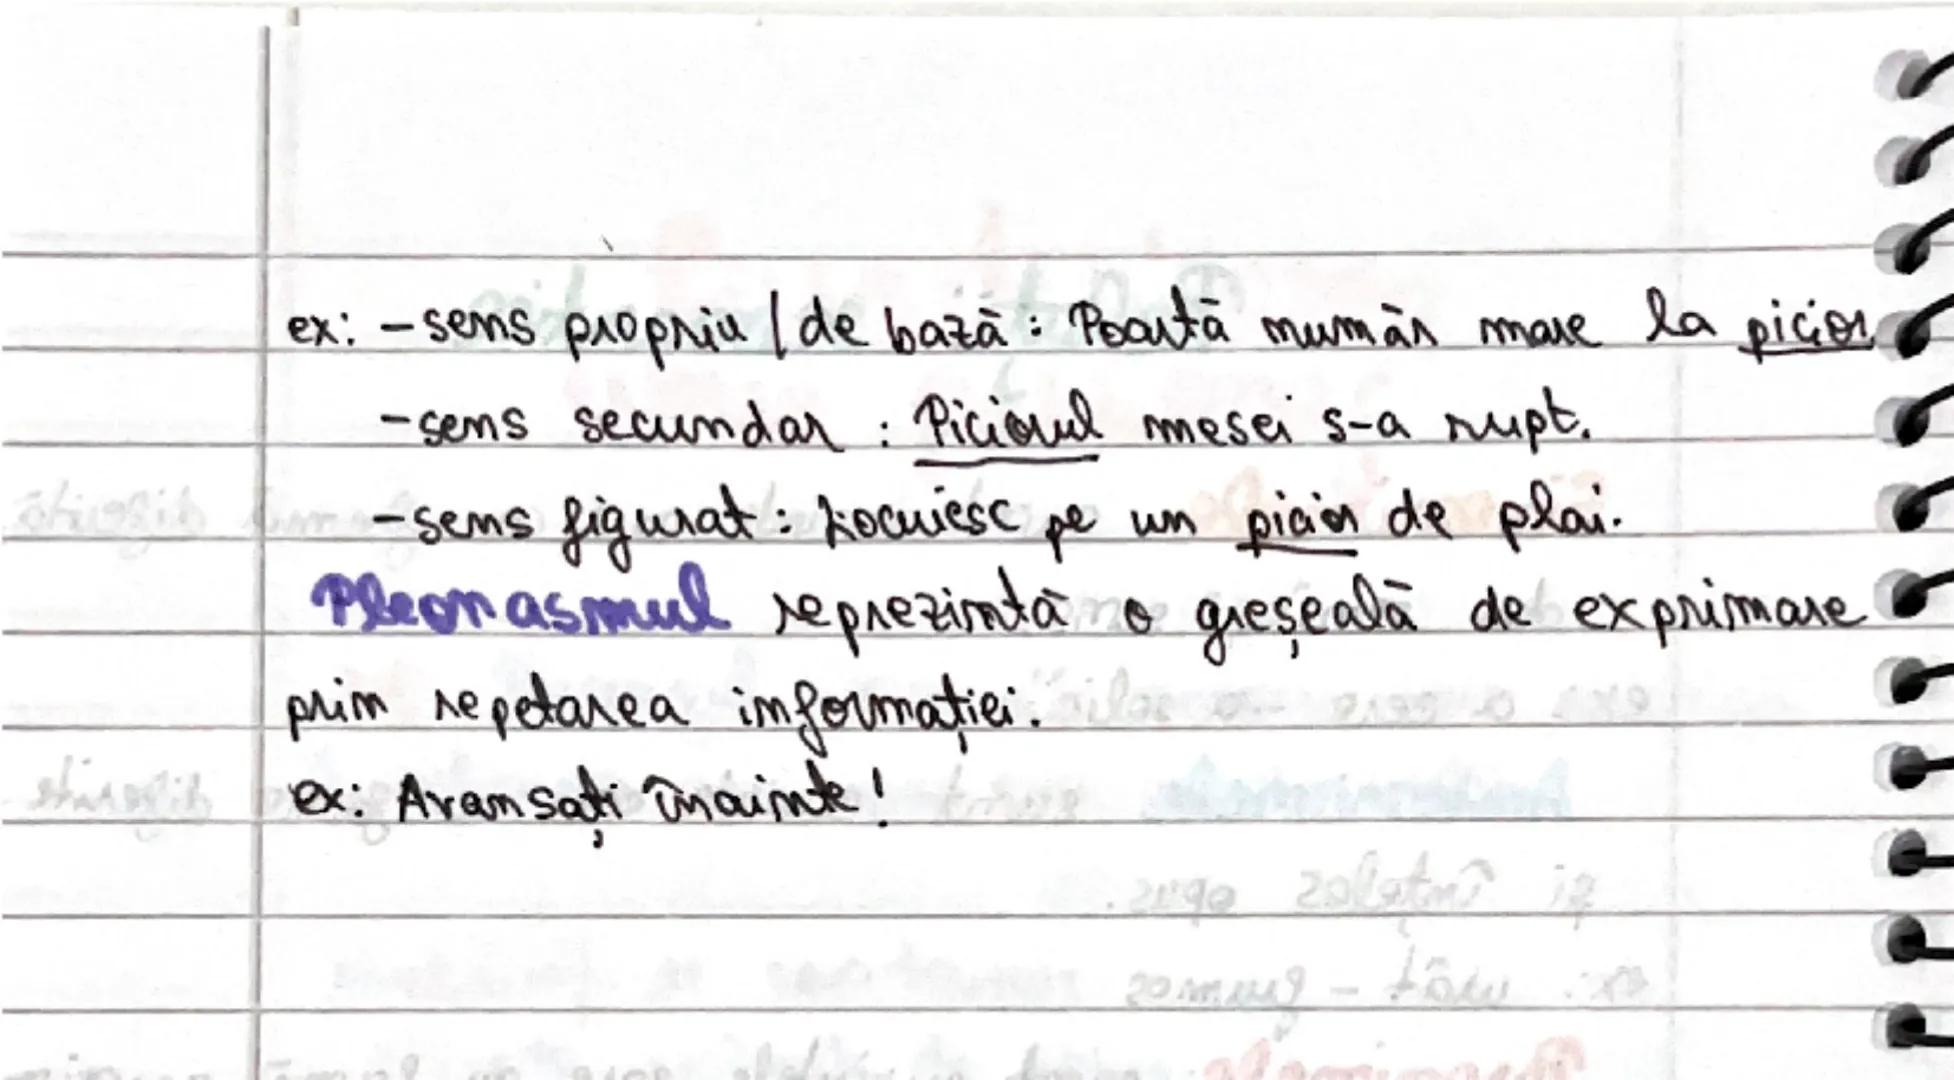 ex: - sens propriu / de bază : Poartă număr mare la picior
- sens secundar : Piciorul mesei s-a rupt.
- sens figurat : Locuiesc pe un picior de plai.
Pleonasmul reprezintă o greșeală de exprimare
prin repetarea informației.
ex: Avansați înainte!